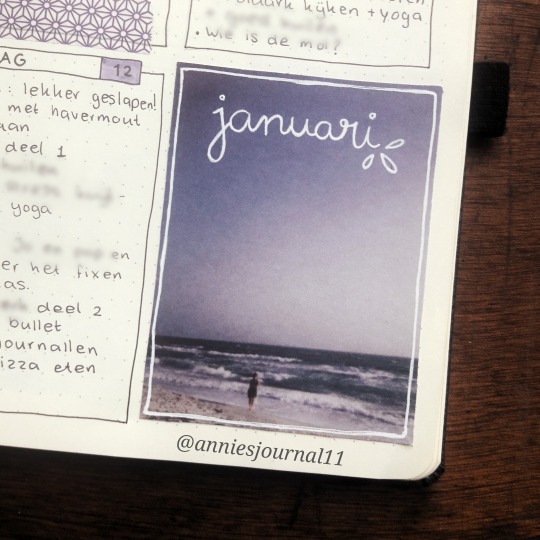 kijken + yoga
• Wie is de mol?
AG
12
: lekker geslapen!
met havermout
aan
deel 1
yoga
en
er het fixen
as.
deel 2
bullet
journallen
izza eten
januari
@anniesjournal11